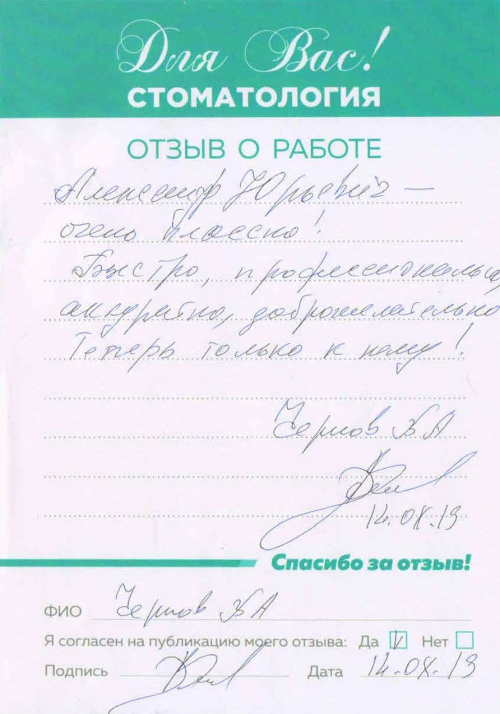 Для Вас!
СТОМАТОЛОГИЯ
ОТЗЫВ О РАБОТЕ
Александр Юрьевич –
очень классно!
Быстро, профессионально,
аккуратно, доброжелательно
Теперь только к нему!
Чернов
Спасибо за отзыв!
ФИО Чернов
Я согласен на публикацию моего отзыва: Да Нет
Подпись Дата